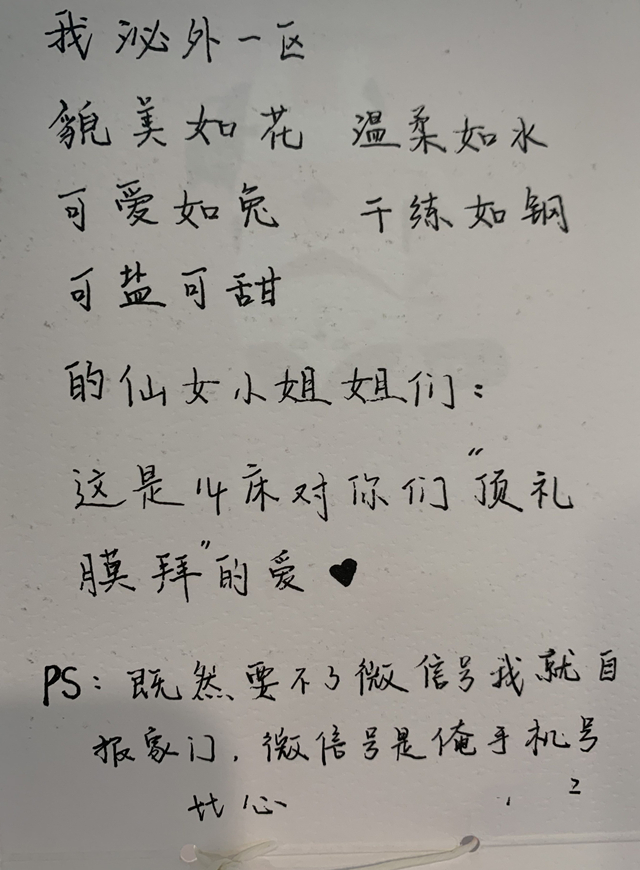 我泌外一区
貌美如花 温柔如水
可爱如兔 干练如钢
可盐可甜
的仙女小姐姐们：
这是14床对你们“顶礼
膜拜”的爱♥
PS：既然要不了微信号我就自
报家门，微信号是俺手机号
比心